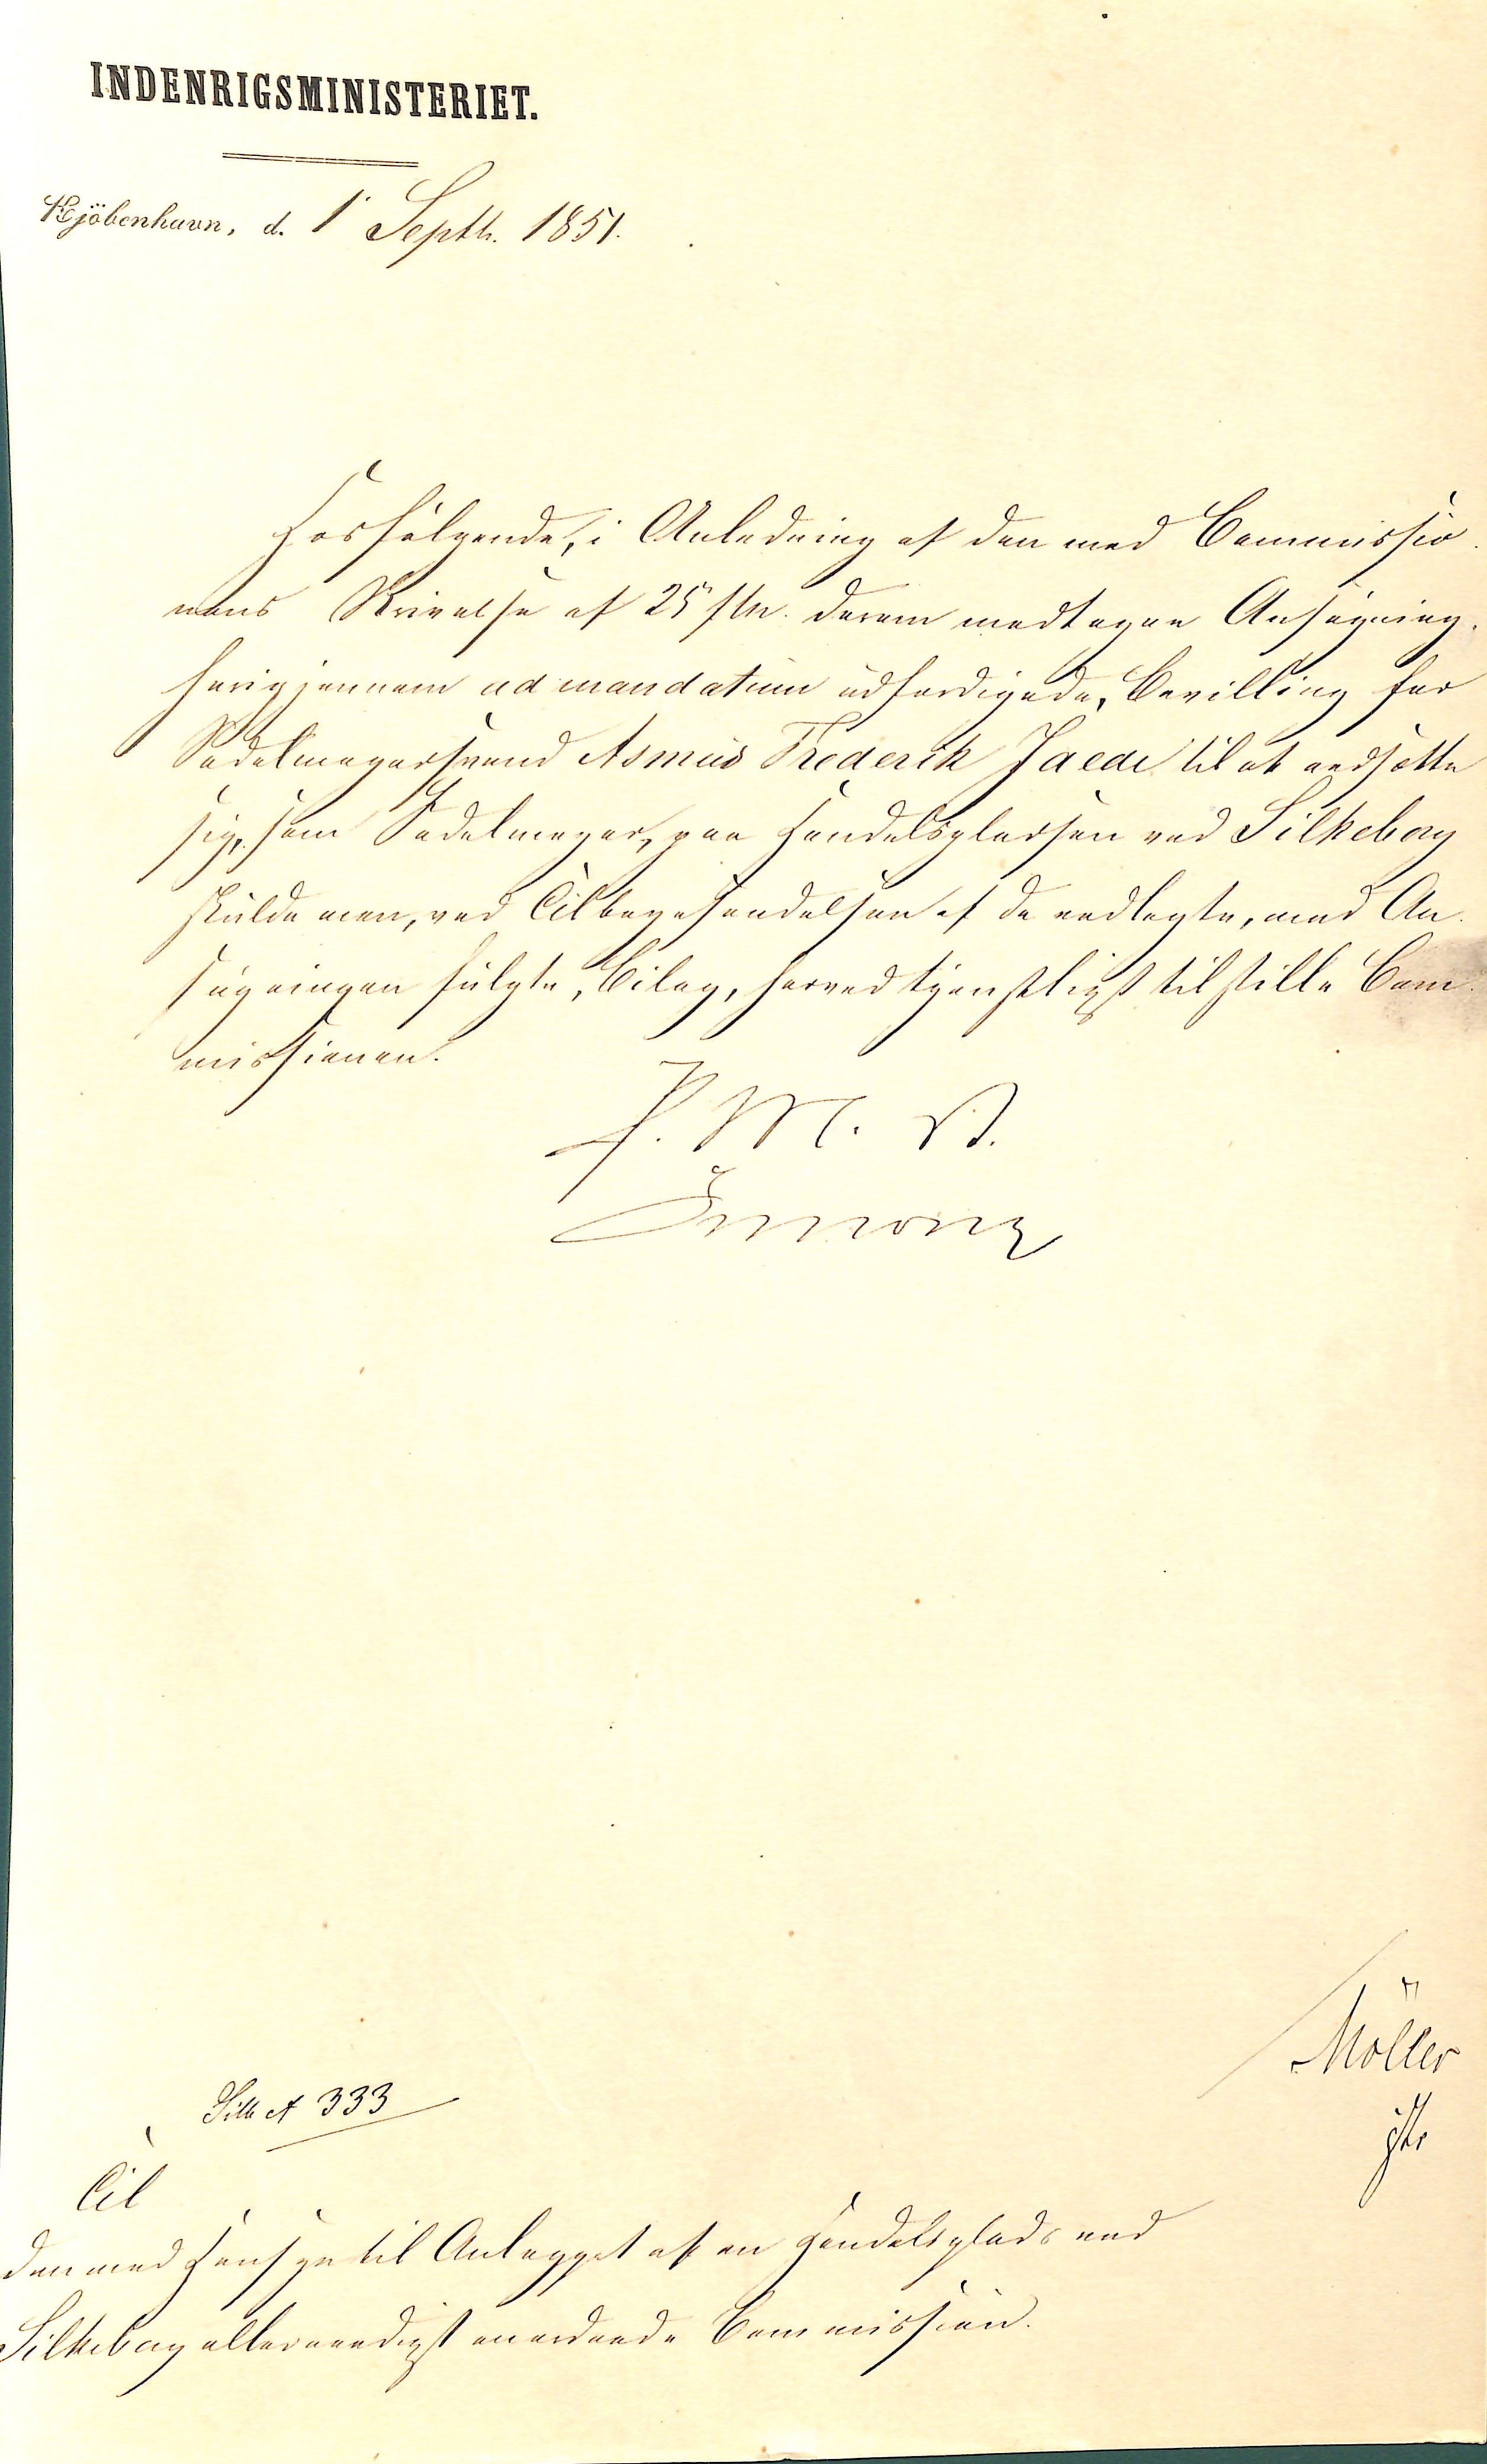 INDENRIGSMINISTERIET.
Kjöbenhavn, d. 1' Septb. 1851.
Hosfølgende, i Anledning af den med Commissio-
nens Skrivelse af 25 f.M. derom modtagne Ansøgning,
herigjennem ad mandatum udfærdigede, Bevilling for
Sadelmagersvend Asmus Frederik Jaede til at nedsætte
sig, som Sadelmager, paa Handelspladsen ved Silkeborg
skulde man, ved Tilbagesendelsen af de vedlagte, med An-
søgningen fulgte, Bilag, herved tjenstligst tilstille Com-
missionen.
P. M. V.
Simony
Möller
Silk A 333
Til
den med Hensyn til Anlægget af en Handelsplads ved
Silkeborg allernaadigst anordnede Commission.